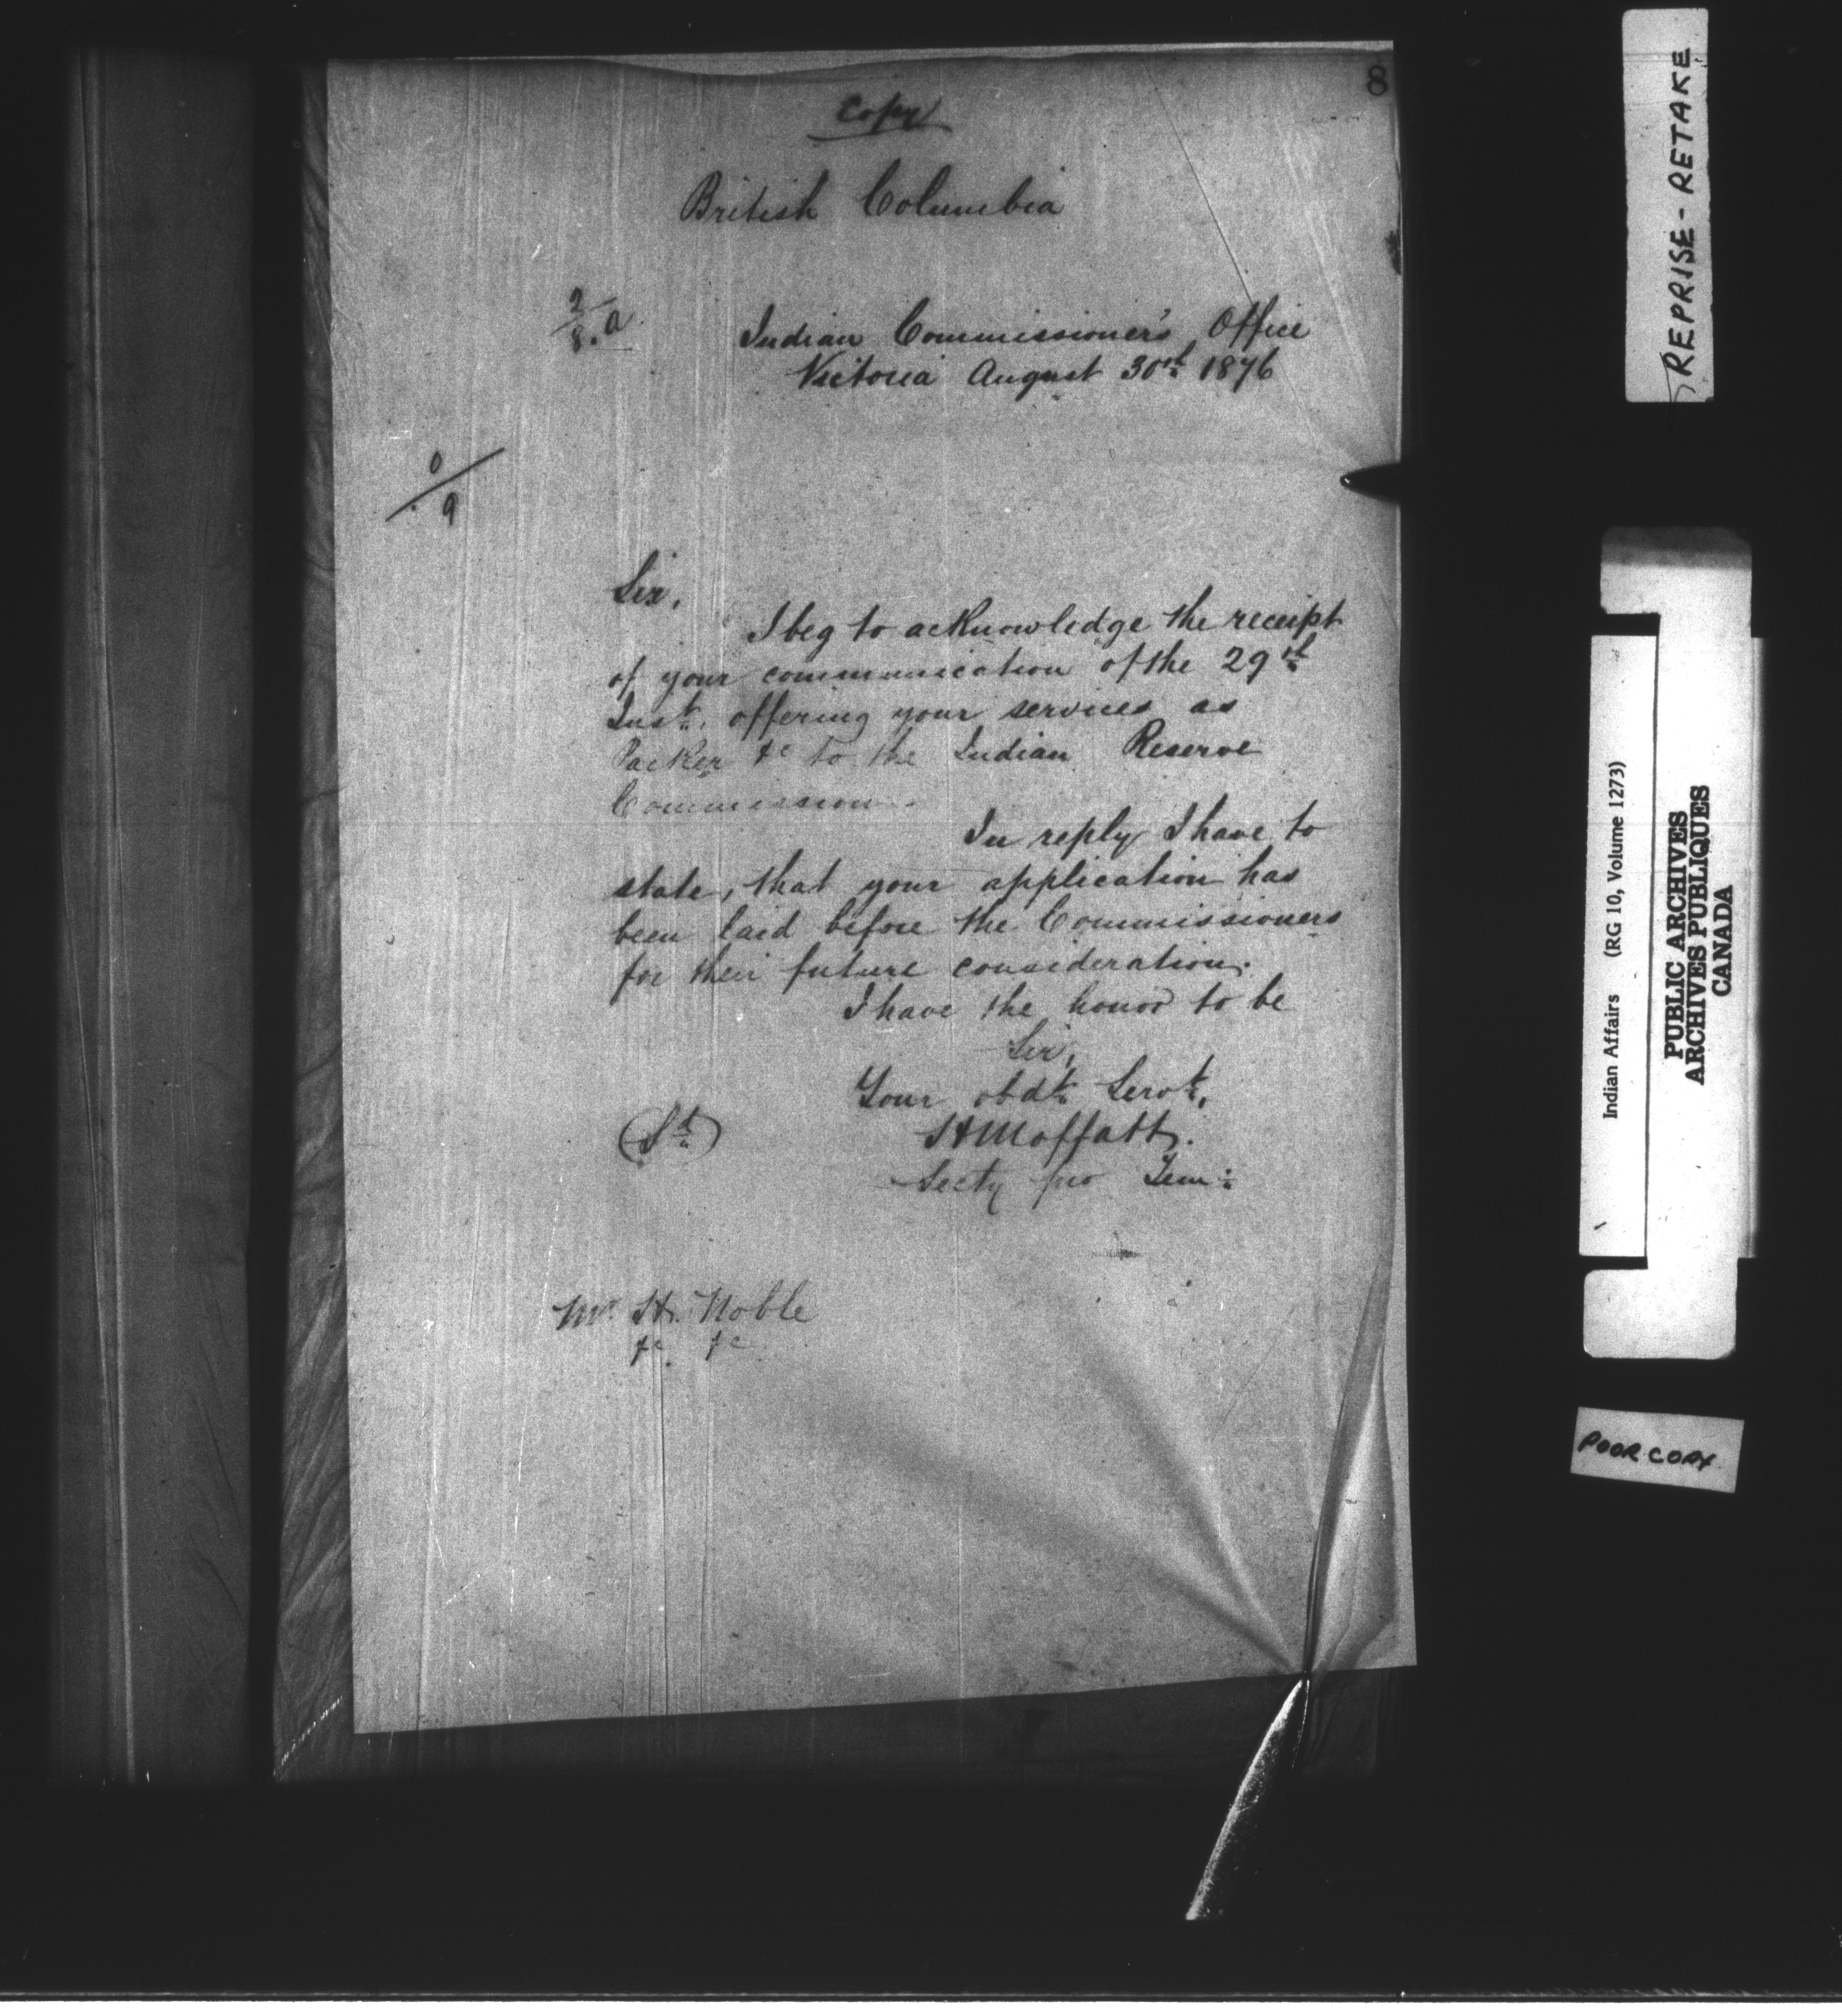 8
Copy
British Columbia
2/8.a
Indian Commissioner's Office
Victoria August 30th 1876
0/9
Sir,
I beg to acknowledge the receipt
of your communication of the 29th
Inst. offering your services as
Packer &c to the Indian Reserve
Commission.
In reply I have to
state, that your application has
been laid before the Commissioners
for their future consideration.
I have the honor to be
Sir,
Your obdt Servt,
(Sd) H Moffatt.
Secty pro Tem:
Mr. H. Noble
&c. &c.
REPRISE - RETAKE
Indian Affairs (RG 10, Volume 1273)
PUBLIC ARCHIVES
ARCHIVES PUBLIQUES
CANADA
POOR COPY